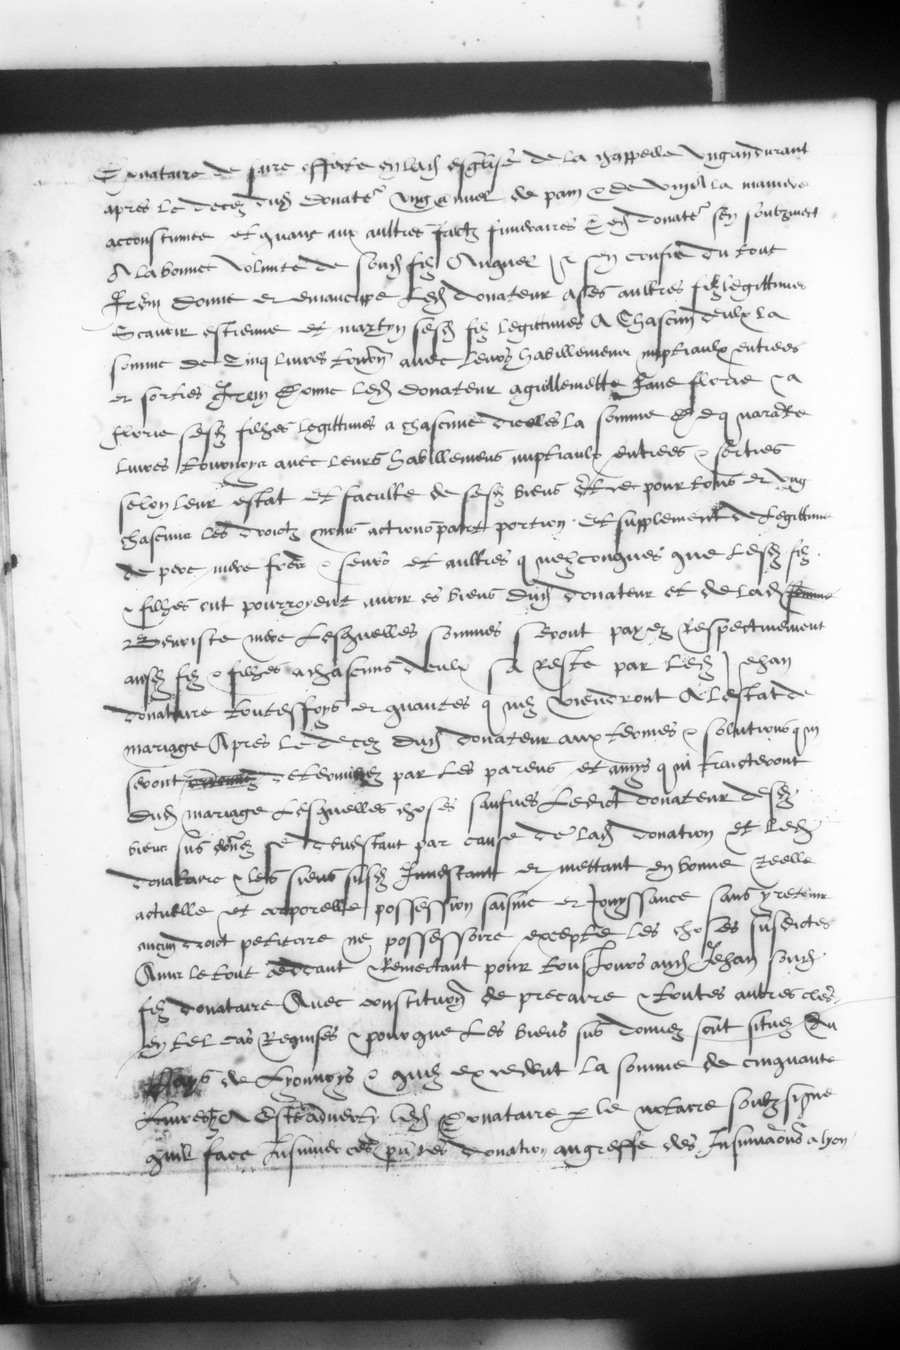 Donataire de faire offerte en lad esglise de la chappelle ung an durant
apres le decez dud donate^r ung de pain & de vin a la maniere
acoustumee et quant aux aultres fraictz funeraires led donate^r sen soubzmect
a la bonne volunte de soud filz & sen confie du tout
Item donne et emancipe led donateur a ses aultres filz legittimes
Scavoir estienne et martyn sesd filz legittimes A Chascun deulx la
somme de Cinq livres tourn avec leurs habillemens nuptiaulx entrees
et sorties Item Donne led donateur a guillemette Jane florie & a
florie sesd filhes legittimes a chascune dicelles la somme de quarante
livres tournoys avec leurs habillemens nuptiaulx entrees & sorties
selon leur estat et faculte de sesd biens Et ce pour tous et ung
chascune les droictz noms actions part portion et supplement de legittime
de pere mere frer & seurs et aultres quezconques que lesd filz
& filhes ont pourroyent avoir es biens dud donateur et de lad femme
Benoiste mere Lesquelles sommes seront payez Respectivement
ausd filz & filhes a chascuns deulx sa reste par led Jehan
donataire toutesfoys et quantes quilz viendront A lestat de
mariage Apres le decez dud donateur aux termes & solutions quil
seront determinez par les parens et amys quil traicteront
dud mariage Lesquelles choses saufves Ledict donateur desd
biens sus donnez se devestant par cause de lad donation Et led
donataire & les siens susd Investant et mettant en bonne reelle
actuelle et corporelle possession saisine et Jouyssance sans y retenir
aucun droict petitoire ne possessoire excepte les choses susdictes
Ains le tout cedant & Remectant pour tousjours aud Jehan soud
filz donataire Avec constitution de precaire & toutes autres cles
en tel cas Requises & pourque les biens sus donnez sont situez Au
Pays de Lyonnoys & quilz excedent la somme de cinquante
Livres A Este adverty led Donataire par le notaire soubzsigne
quil face Insinuer ces pntes donation au greffe des Insinuaons a lyon